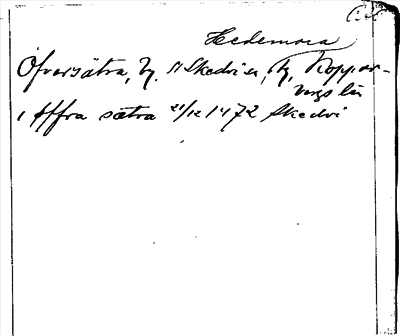 Hedemora
Öfversätra, by. St Skedvi sn, Kopparbergs län
i Øffra sætra 21/12 1472 Skedvi